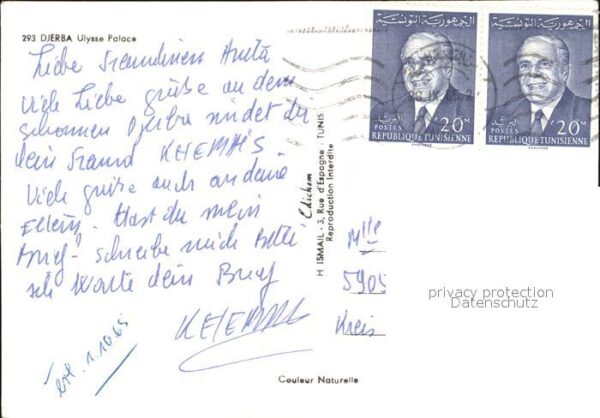 293 DJERBA Ulysse Palace
Liebe Freundinen Anita
Viele Liebe grüße an dem
schonnen Djerba sindet dir
dein Freund KHEMAIS
Viele grüße auch an deine
Eltern. Hast du mein
Brief - schreibe mich Bitte
ich warte dein Brief
KHEMAIS
1.10 65
Couleur Naturelle
Chichem
H ISMAIL - 3, Rue d'Espagne - TUNIS
Reproduction Interdite
الجمهورية التونسية
البريد
20ᴹ
POSTES
REPUBLIQUE TUNISIENNE
الجمهورية التونسية
البريد
20ᴹ
POSTES
REPUBLIQUE TUNISIENNE
Mlle
5905
Kreis
privacy protection
Datenschutz